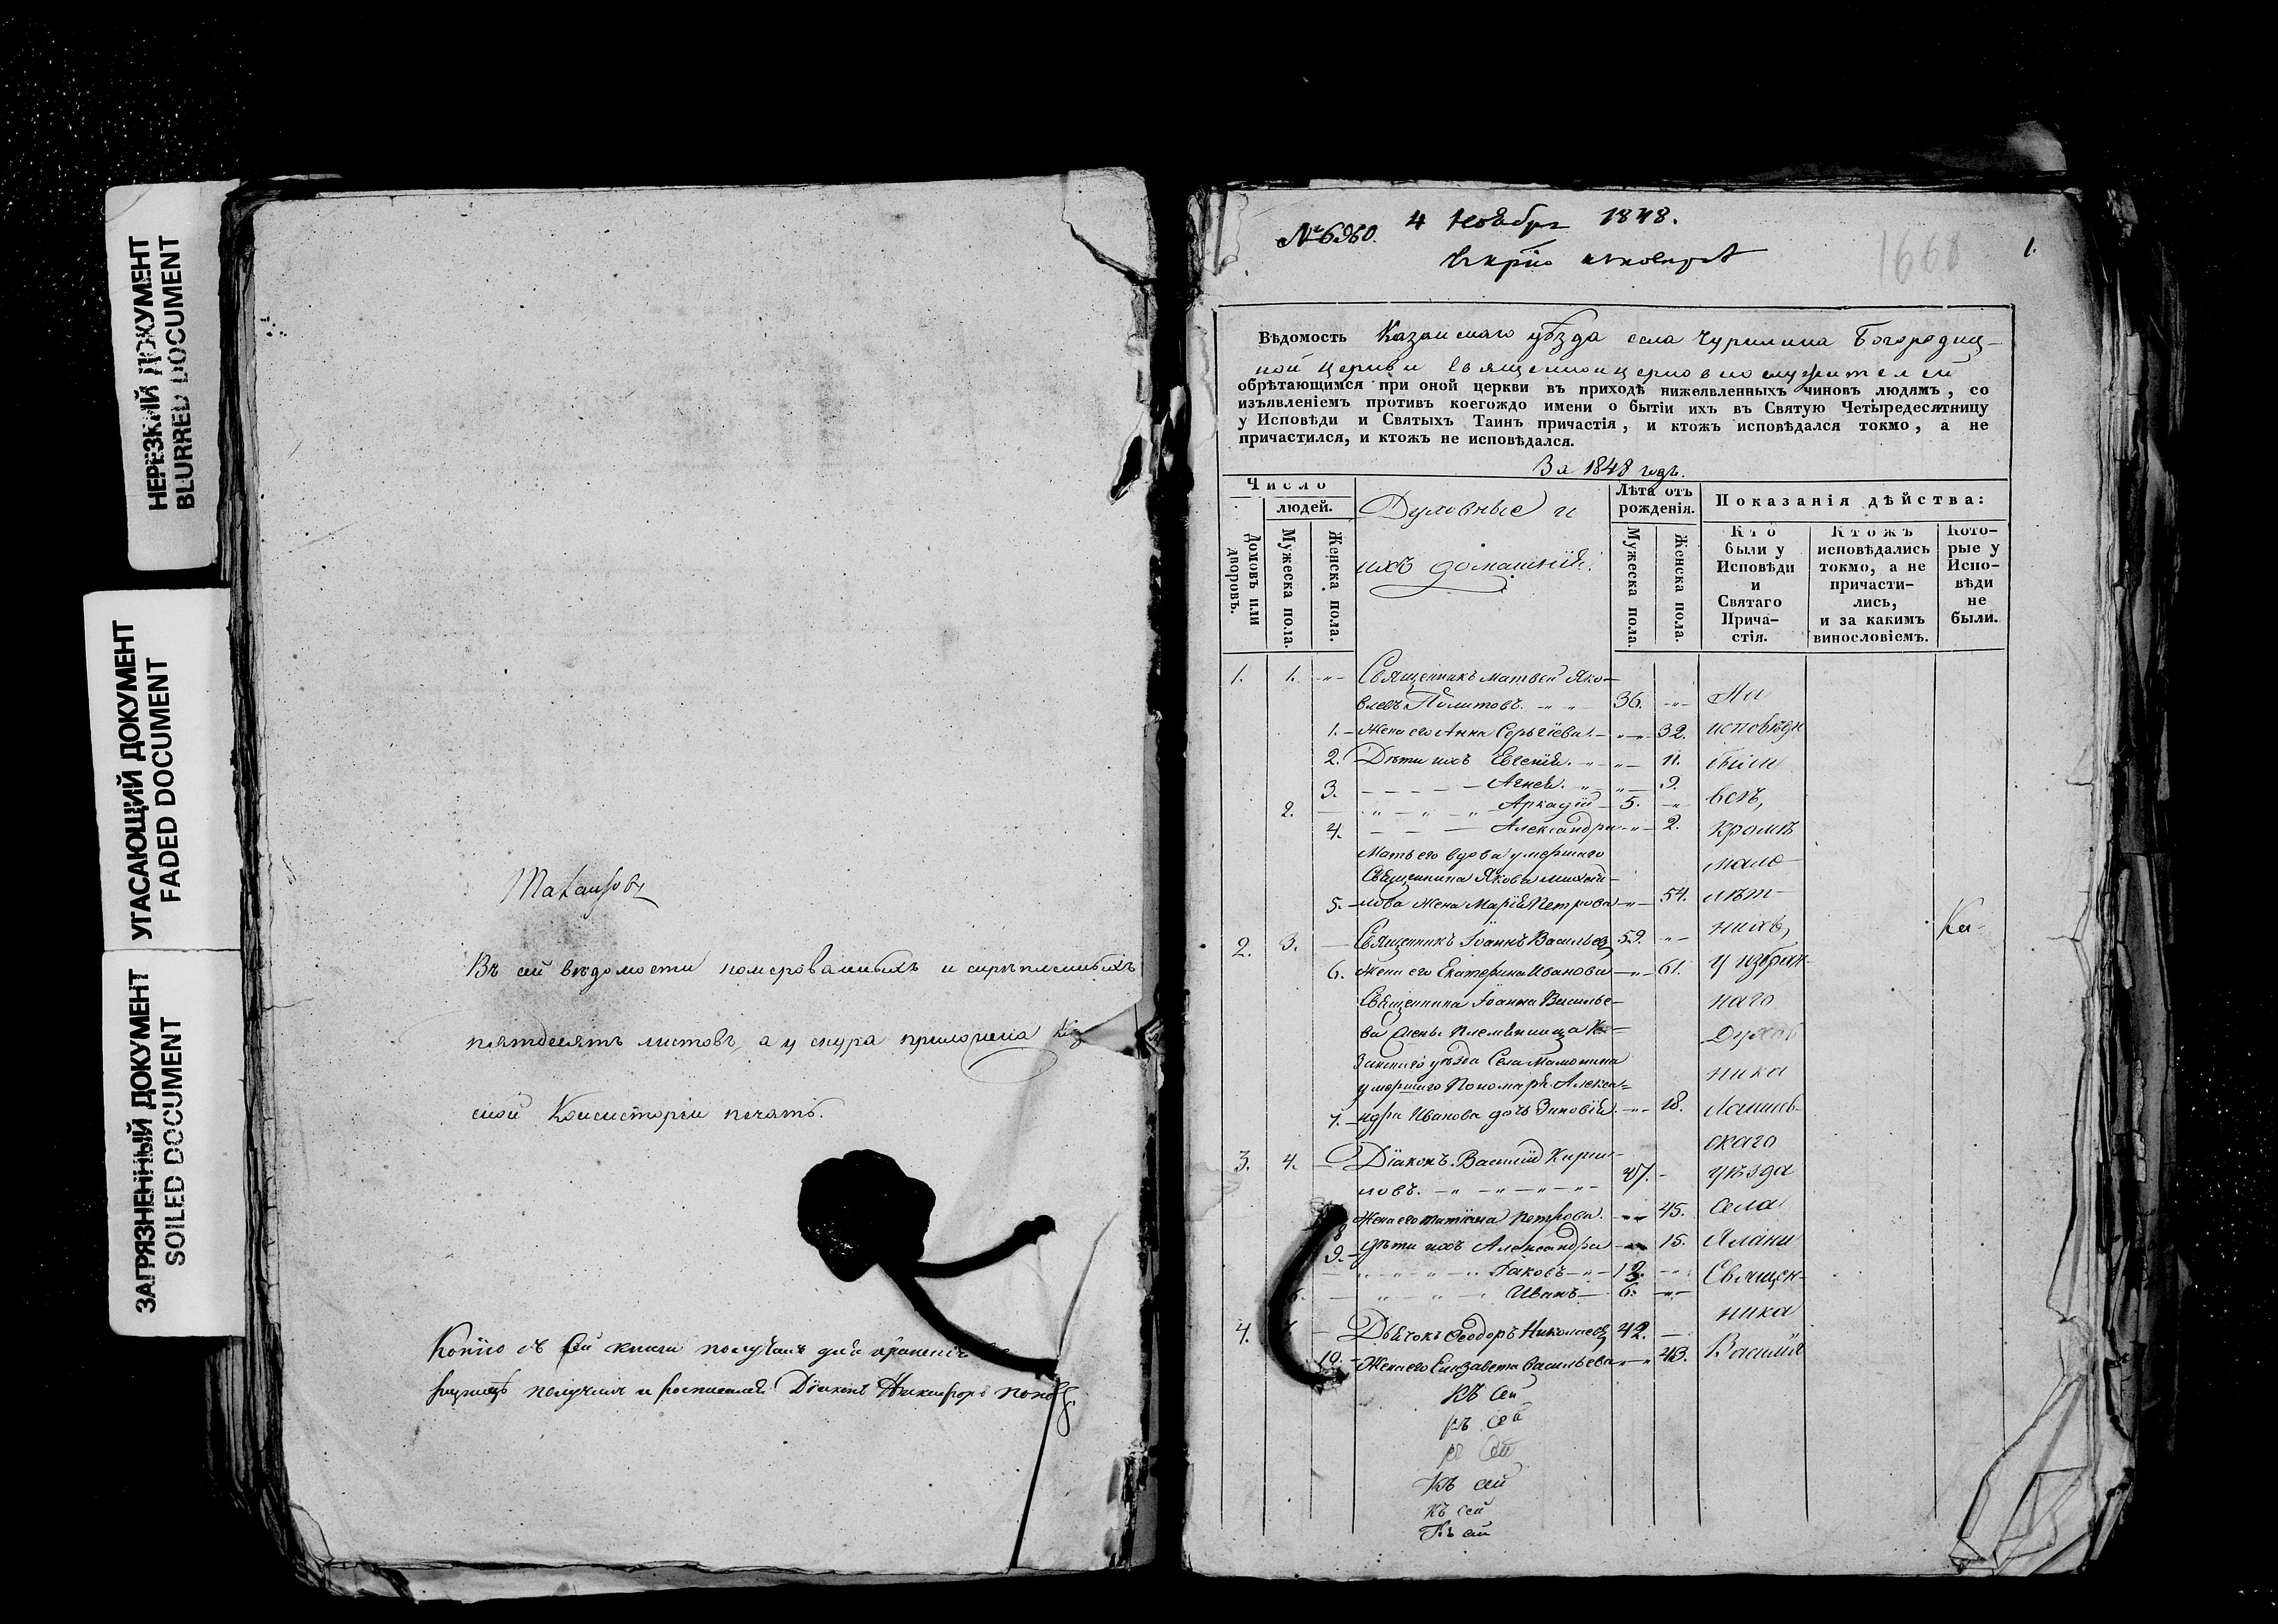 НЕРЕЗКИЙ ДОКУМЕНТ
BLURRED DOCUMENT
УГАСАЮЩИЙ ДОКУМЕНТ
FADED DOCUMENT
ЗАГРЯЗНЕННЫЙ ДОКУМЕНТ
SOILED DOCUMENT
Въ сей вѣдомости номерованныхъ и скрѣпленныхъ
пятдесятъ листовъ, а у снура приложена Каз
ской Консисторіи печать.
Копію съ сей книги получилъ для храненія
получилъ и росписался Діаконъ Никифоръ Поповъ.
№ 6960. 4 Ноября 1848.
1660
1.
Вѣдомость Казанскаго уѣзда села Чурилина Богородиц-
ной церкви священноцерковнослужителей
обрѣтающимся при оной церкви въ приходѣ нижеявленныхъ чиновъ людямъ, со
изъявленіемъ противъ коегождо имени о бытіи ихъ въ Святую Четыредесятницу
у Исповѣди и Святыхъ Таинъ причастія, и ктожъ исповѣдался токмо, а не
причастился, и ктожъ не исповѣдался.
За 1848 годъ.
Число
людей.
Домовъ или дворовъ.
Мужеска пола.
Женска пола.
Духовные и
ихъ домашніи.
Лѣта отъ рожденія.
Мужеска пола.
Женска пола.
Показанія дѣйства:
Кто были у Исповѣди и Святаго Прича- стія.
Ктожъ исповѣдались токмо, а не причасти- лись, и за какимъ винословіемъ.
Кото- рые у Испо- вѣди не были.
1. 1. Священникъ Матвей Яко-
влевъ Политовъ. 36. На
1. Жена его Анна Сергіева. 32. исповѣди
2. Дѣти ихъ Евгенія. 11. были
3. Агнея. 9.
2. Аркадій 5. всѣ,
4. Александра 2. кромѣ
Мать его вдова умершаго мало-
Священника Якова Михай-
5. лова жена Марія Петрова 54. лѣт-
нихъ,
2. 3. Священникъ Іоаннъ Васильевъ 59. Ка-
6. Жена его Екатерина Иванова 61. у избран-
Священника Іоанна Василье- наго
ва жены племянница Ка- Духов
занскаго уѣзда Села Мамонина
умершаго Пономаря Алекса- ника
7. ндра Иванова дочь Зиновія. 18. Лаишев-
скаго
3. 4. Діаконъ Василій Кирил-
ловъ. 47. уѣзда
8 Жена его Татіана Петрова. 45. Села
9. Дѣти ихъ Александра 15. Алани
Іаковъ 13. Священ-
6. Иванъ 6.
ника
4. Дьячокъ Ѳеодоръ Николаевъ 42.
10. Жена его Елизавета Васильева 43. Василія
Къ сей
къ сей
къ сей
Къ сей
Къ сей
Къ сей